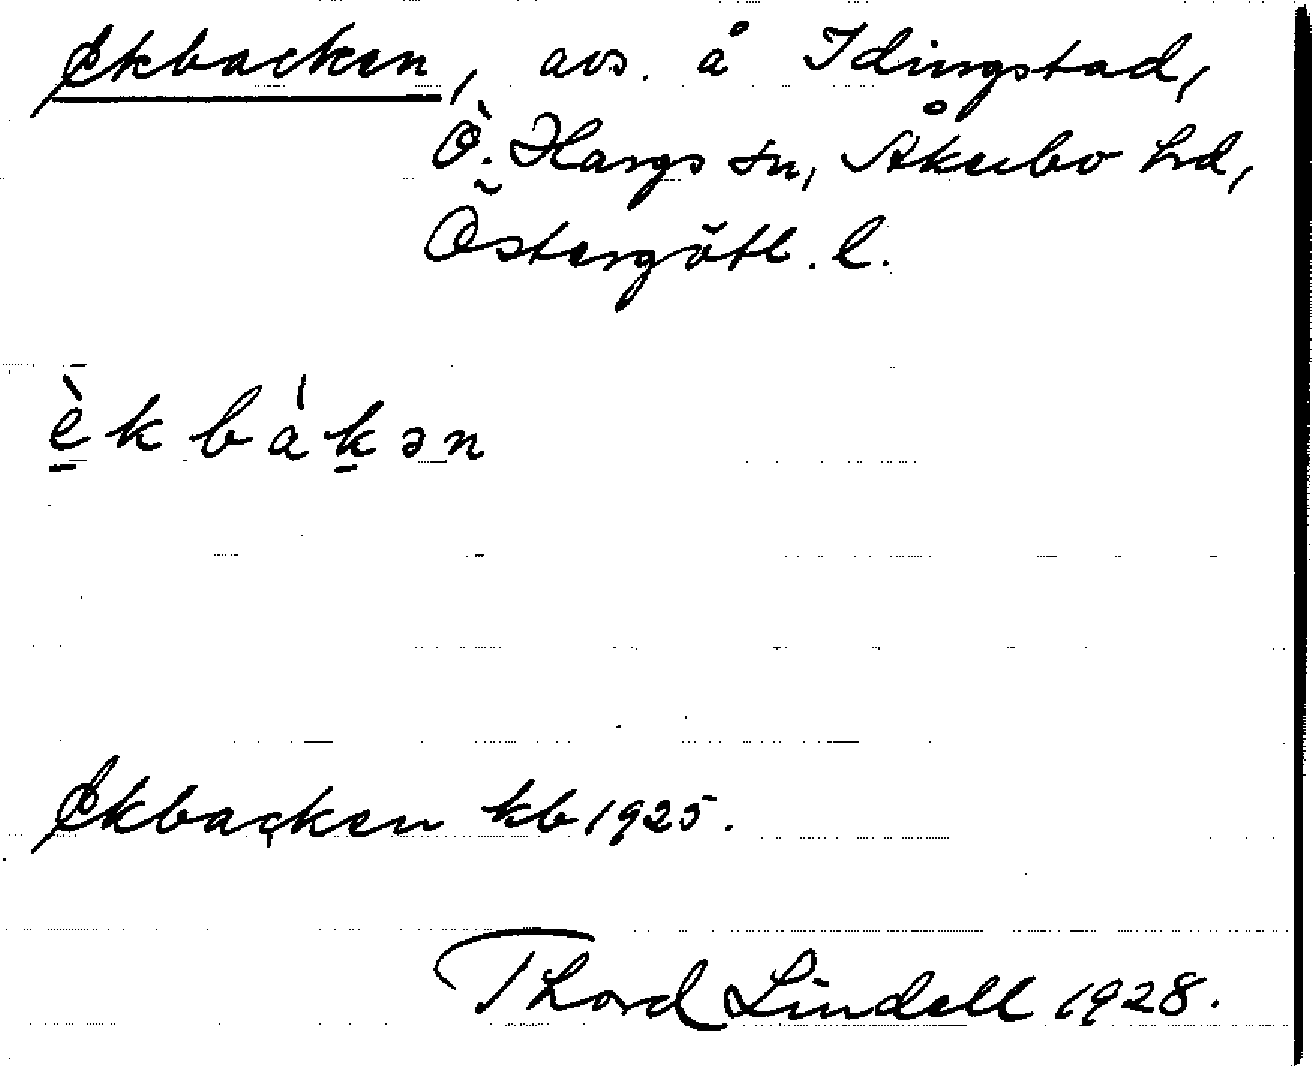 Ekbacken, avs. å Idingstad,
Ö. Hargs sn, Åkerbo hd,
Östergötl. l.
è̱kbáḵən
Ekbacken kb 1925.
Thord Lindell 1928.